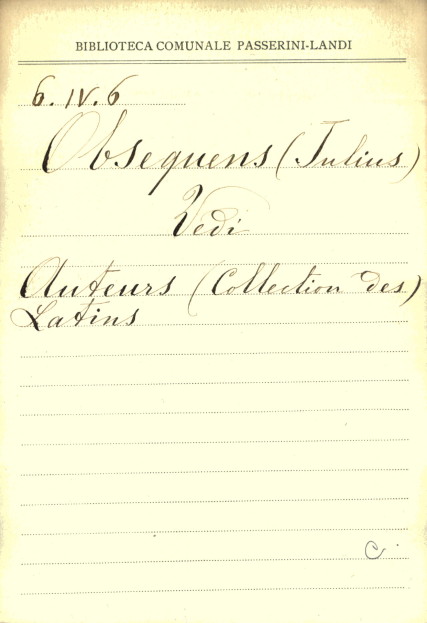 BIBLIOTECA COMUNALE PASSERINI-LANDI
6.IV.6
Obsequens (Julius)
Vedi
Auteurs (Collection des)
Latins
C.